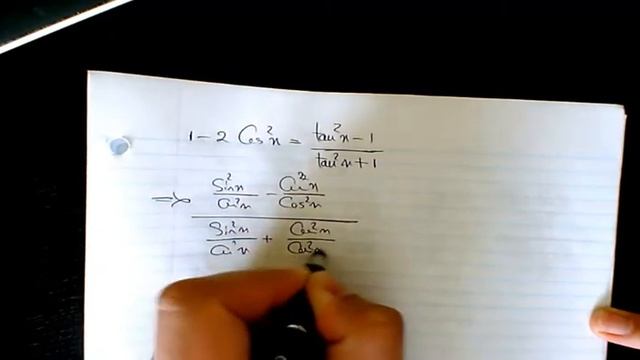 1 - 2 Cos²x = (tan²x - 1)/(tan²x + 1)
⇒ (Sin²x/Cos²x - Cos²x/Cos²x)/(Sin²x/Cos²x + Cos²x/Cos²x)